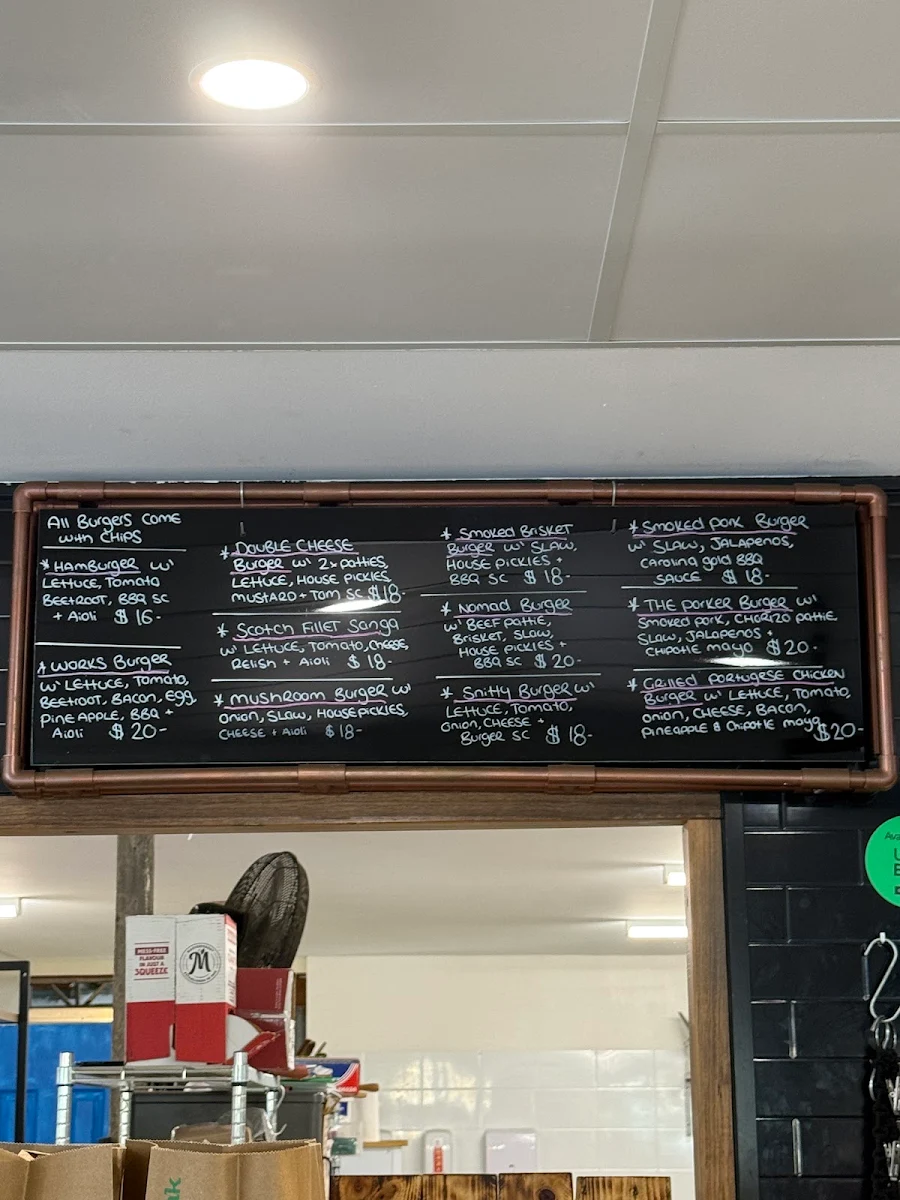 All Burgers come
with CHIPS
* HamBurger w'
LETTUCE, Tomato
BEETROOT, BBQ SC
+ Aioli $16-
* WORKS Burger
w' LETTUCE, Tomato,
BEETROOT, Bacon, Egg,
PINEAPPLE, BBQ +
Aioli $20-
* DOUBLE CHEESE
Burger w' 2x patties,
LETTUCE, HOUSE PICKLES
MUSTARD + Tom SC $18-
* Scotch Fillet Sanga
w' LETTUCE, Tomato, CHEESE,
RELISH + Aioli $18-
* MUSHROOM Burger w'
onion, SLAW, HOUSE PICKLES,
CHEESE + Aioli $18-
* Smoked BRISKET
Burger w' SLAW,
HOUSE PICKLES +
BBQ SC $18-
* Nomad Burger
w' BEEF pattie,
BRISKET, SLAW,
HOUSE PICKLES +
BBQ SC $20-
* Snitty Burger w'
LETTUCE, Tomato,
onion, CHEESE +
Burger SC $18-
* Smoked pork Burger
w' SLAW, JALAPENOS,
carolina gold BBQ
SAUCE $18-
* THE porker Burger w'
Smoked pork, CHORIZO pattie,
SLAW, JALAPENOS +
CHIPOTLE mayo $20-
* Grilled portugese CHICKEN
Burger w' LETTUCE, Tomato,
onion, CHEESE, Bacon,
PINEAPPLE & Chipotle mayo
$20-
MESS-FREE
FLAVOUR
IN JUST A
SQUEEZE
M